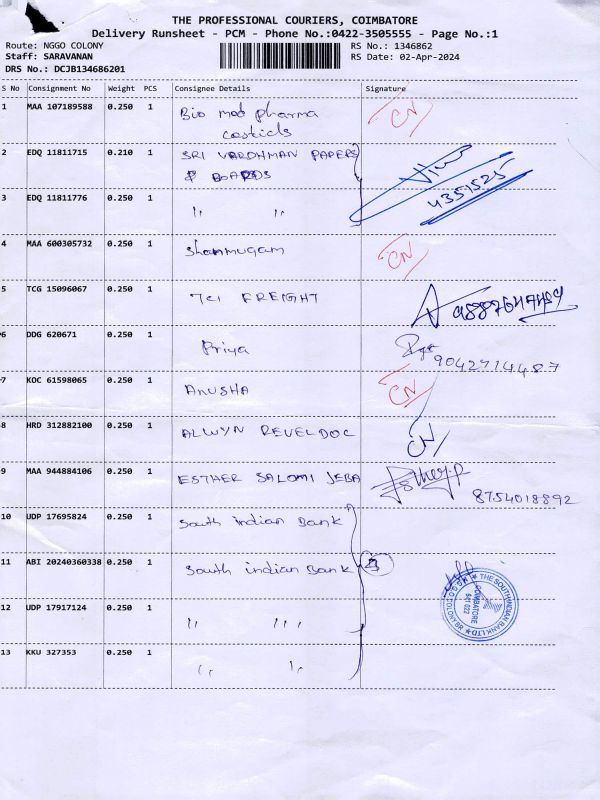 THE PROFESSIONAL COURIERS, COIMBATORE
Delivery Runsheet - PCM - Phone No.:0422-3505555 - Page No.:1
Route: NGGO COLONY RS No.: 1346862
Staff: SARAVANAN RS Date: 02-Apr-2024
DRS No.: DCJB134686201
S No Consignment No Weight PCS Consignee Details Signature
1 MAA 107189588 0.250 1 Bio med pharma CN
2 EDQ 11811715 0.210 1 SRI VARDHMAN PAPERS
& BOARDS 4351525
3 EDQ 11811776 0.250 1 〃 〃
4 MAA 600305732 0.250 1 Shanmugam CN
5 TCG 15096067 0.250 1 TCI FREIGHT 9887647489
6 DDG 620671 0.250 1 Priya
9042714487
7 KOC 61598065 0.250 1 ANUSHA CN
8 HRD 312882100 0.250 1 ALWYN REVELDOC CN
9 MAA 944884106 0.250 1 ESTHER SALOMI JEBA Esther.P
8754018892
10 UDP 17695824 0.250 1 South indian Bank
11 ABI 20240360338 0.250 1 South indian Bank 4
12 UDP 17917124 0.250 1 〃 〃
13 KKU 327353 0.250 1 〃 〃
THE SOUTH INDIAN BANK LTD
COIMBATORE
641 022